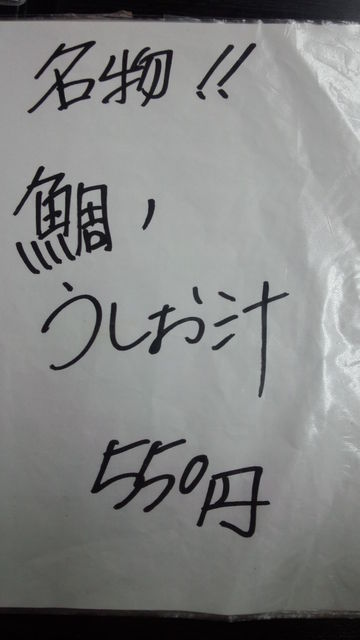 名物!!
鯛ノ
うしお汁
550円